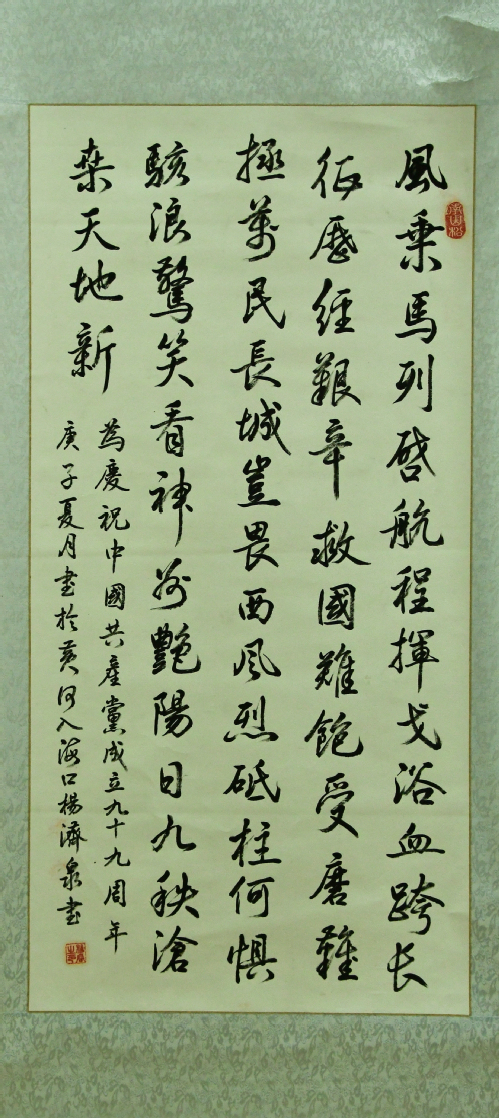 風乘馬列啓航程揮戈浴血跨长
征歷經艱辛救國難飽受磨難
拯萬民長城豈畏西风烈砥柱何惧
駭浪驚笑看神州艷陽日九秩滄
桑天地新
為慶祝中國共產黨成立九十九周年
庚子夏月書於黄河入海口楊濟泉書